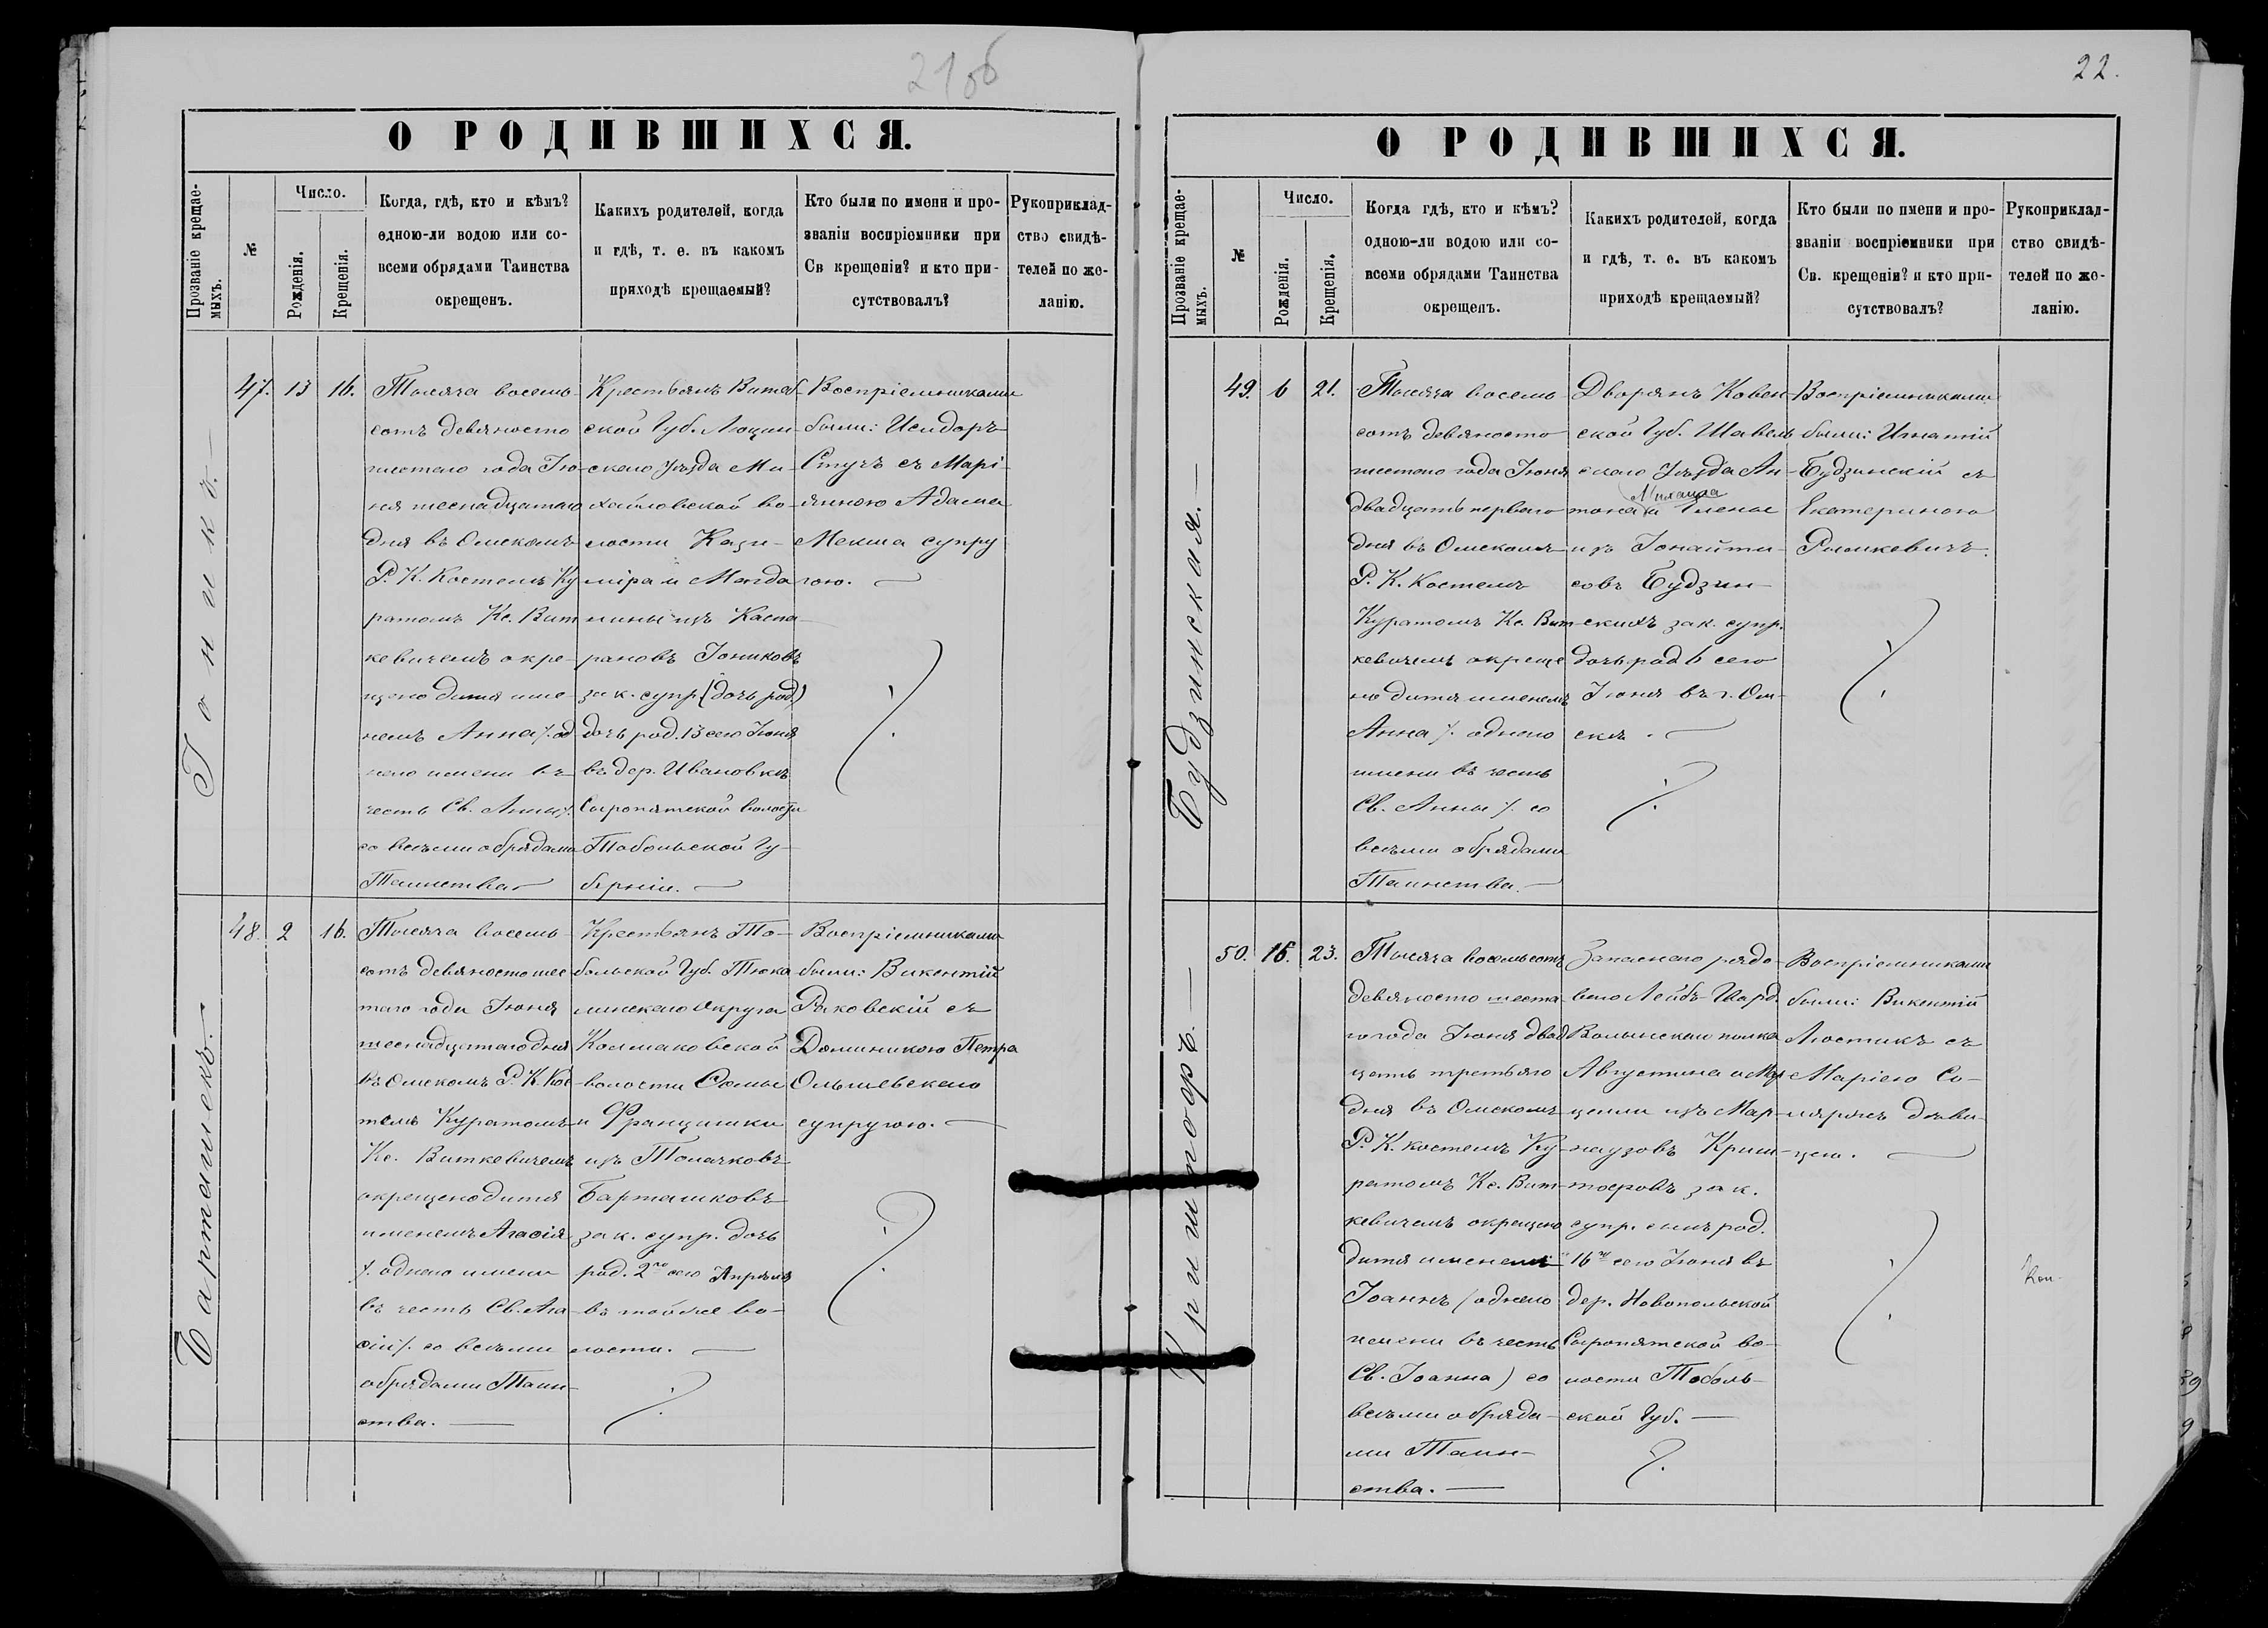 21об
О РОДИВШИХСЯ.
Прозваніе крещае-
мыхъ.
№
Число.
Рожденія.
Крещенія.
Когда, гдѣ, кто и кѣмъ?
едною-ли водою или со-
всеми обрядами Таинства
окрещенъ.
Какихъ родителей, когда
и гдѣ, т. е. въ какомъ
приходѣ крещаемый?
Кто были по имени и про-
званіи воспріемники при
Св крещеніи? и кто при-
сутствовалъ?
Рукоприклад-
ство свидѣ-
телей по же-
ланію.
Іоникъ.
47.
13
16.
Тысяча восемь-
сотъ девяносто
шестаго года Ію-
ня шеснадцатаго
дня въ Омскомъ
Р. К. Костелѣ Ку
ратомъ Кс. Вит
кевичемъ окре-
щено дитя име-
немъ Анна /. од
ного имени въ
честь Св. Анны /.
со всѣми обрядами
Таинства
Крестьянъ Витеб-
ской Губ. Люцин-
скаго уѣзда Ми-
хайловской во-
лости Кази-
міра и Магда
лины изъ Каспа-
рановъ Іониковъ
зак. супр. (дочь род.)
дочь род. 13 сего Іюня
въ дер. Ивановкѣ
Сыропятской волости
Тобольской Гу-
берніи.
Воспріемниками
были: Исидоръ
Стучъ съ Марі-
янною Адама
Мекша супру
гою.
Барташекъ.
48.
2
16.
Тысяча восемь-
сотъ девяносто шес
таго года Іюня
шеснадцатаго дня
въ Омскомъ Р. К. Кос
телѣ Куратомъ
Кс. Виткевичемъ
окрещено дитя
именемъ Агафія
/. одного имени
въ честь Св. Ага-
фіи /. со всѣми
обрядами Таин-
ства.
Крестьянъ То-
больской Губ. Тюка
линскаго Округа
Колмаковской
волости Фомы
и Францишки
изъ Толачковъ
Барташковъ
зак. супр. дочь
род. 2го сего Апрѣля
въ той же во-
лости.
Воспріемниками
были: Викентій
Раковскій съ
Доминикою Петра
Ольшевскаго
супругою.
22.
О РОДИВШИХСЯ.
Прозваніе крещае-
мыхъ.
№
Число.
Рожденія.
Крещенія.
Когда гдѣ, кто и кѣмъ?
одною-ли водою или со-
всеми обрядами Таинства
окрещенъ.
Какихъ родителей, когда
и гдѣ, т. е. въ какомъ
приходѣ крещаемый?
Кто были по имени и про-
званіи воспріемники при
Св. крещеніи? и кто при-
сутствовалъ?
Рукоприклад-
ство свидѣ-
телей по же-
ланію.
Будзинская.
49.
6
21.
Тысяча восемь
сотъ девяносто
шестаго года Іюня
двадцать перваго
дня въ Омскомъ
Р. К. Костелѣ
Куратомъ Кс. Вит-
кевичемъ окреще
но дитя именемъ
Анна /. одного
имени въ честь
Св. Анны /. со
всѣми обрядами
Таинства.
Дворянъ Ковен-
ской Губ. Шавель
скаго уѣзда Ан-
Михаила
тона и Елены
изъ Іонайти-
совъ Будзин-
скихъ зак. супр.
дочь род 6 сего
Іюня въ г. Ом-
скѣ.
Воспріемниками
были: Игнатій
Будзинскій съ
Екатериною
Рымкевичъ.
Криштофъ.
50.
16.
23.
Тысяча восемьсотъ
девяносто шеста-
го года Іюня двад
цать третьяго
дня въ Омскомъ
Р. К. костелѣ Ку-
ратомъ Кс. Вит-
кевичемъ окрещено
дитя именемъ
Іоаннъ (одного
имени въ честь
Св. Іоанна) со
всѣми обряда-
ми Таин-
ства.
Запаснаго рядо-
ваго Лейбъ-Гвард.
Волынскаго полка
Августина и Мар
целли изъ Мар-
наузовъ Криш-
тофовъ зак.
супр. сынъ род.
16го сего Іюня въ
дер. Новопольской
Сыропятской во-
лости Тоболь-
ской Губ.
Воспріемниками
были: Викентій
Люстикъ съ
Маріею Со-
ляржъ дѣви-
цею.
Коп.